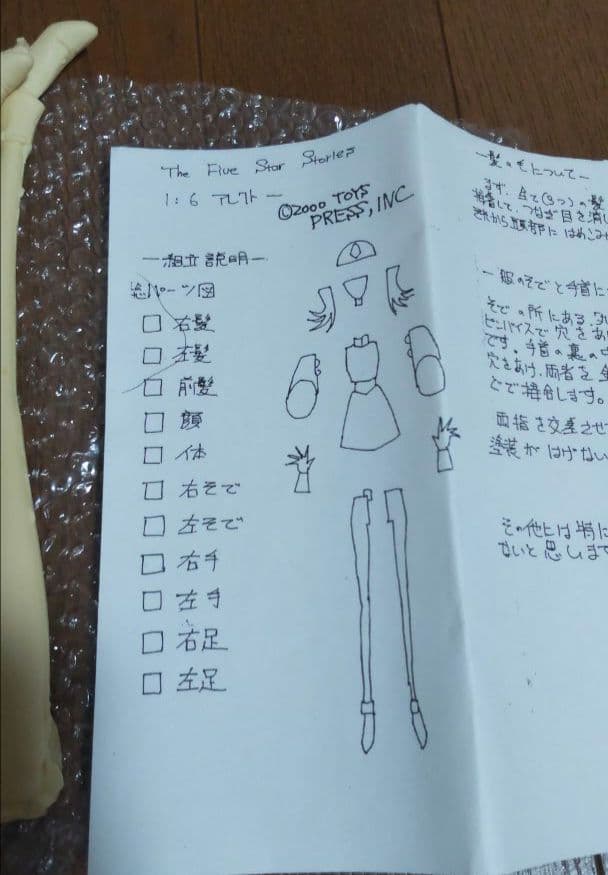 The Five Star Stories
1:6 アレクトー
©2000 TOYS
PRESS, INC
ー組立説明ー
総パーツ図
□ 右髪
□ 左髪
□ 前髪
□ 顔
□ 体
□ 右そで
□ 左そで
□ 右手
□ 左手
□ 右足
□ 左足
ー髪の毛についてー
まず、全て(3つ)の髪
接着して、つなぎ目を消
それから頭部に はめこみ
ー服のそでと手首に
そでの所にある
ピンバイスで穴をあ
です。手首の裏の
穴をあけ、両者を
どで接合します。
両指を交差させ
塗装がはげない
その他には特に
ないと思します